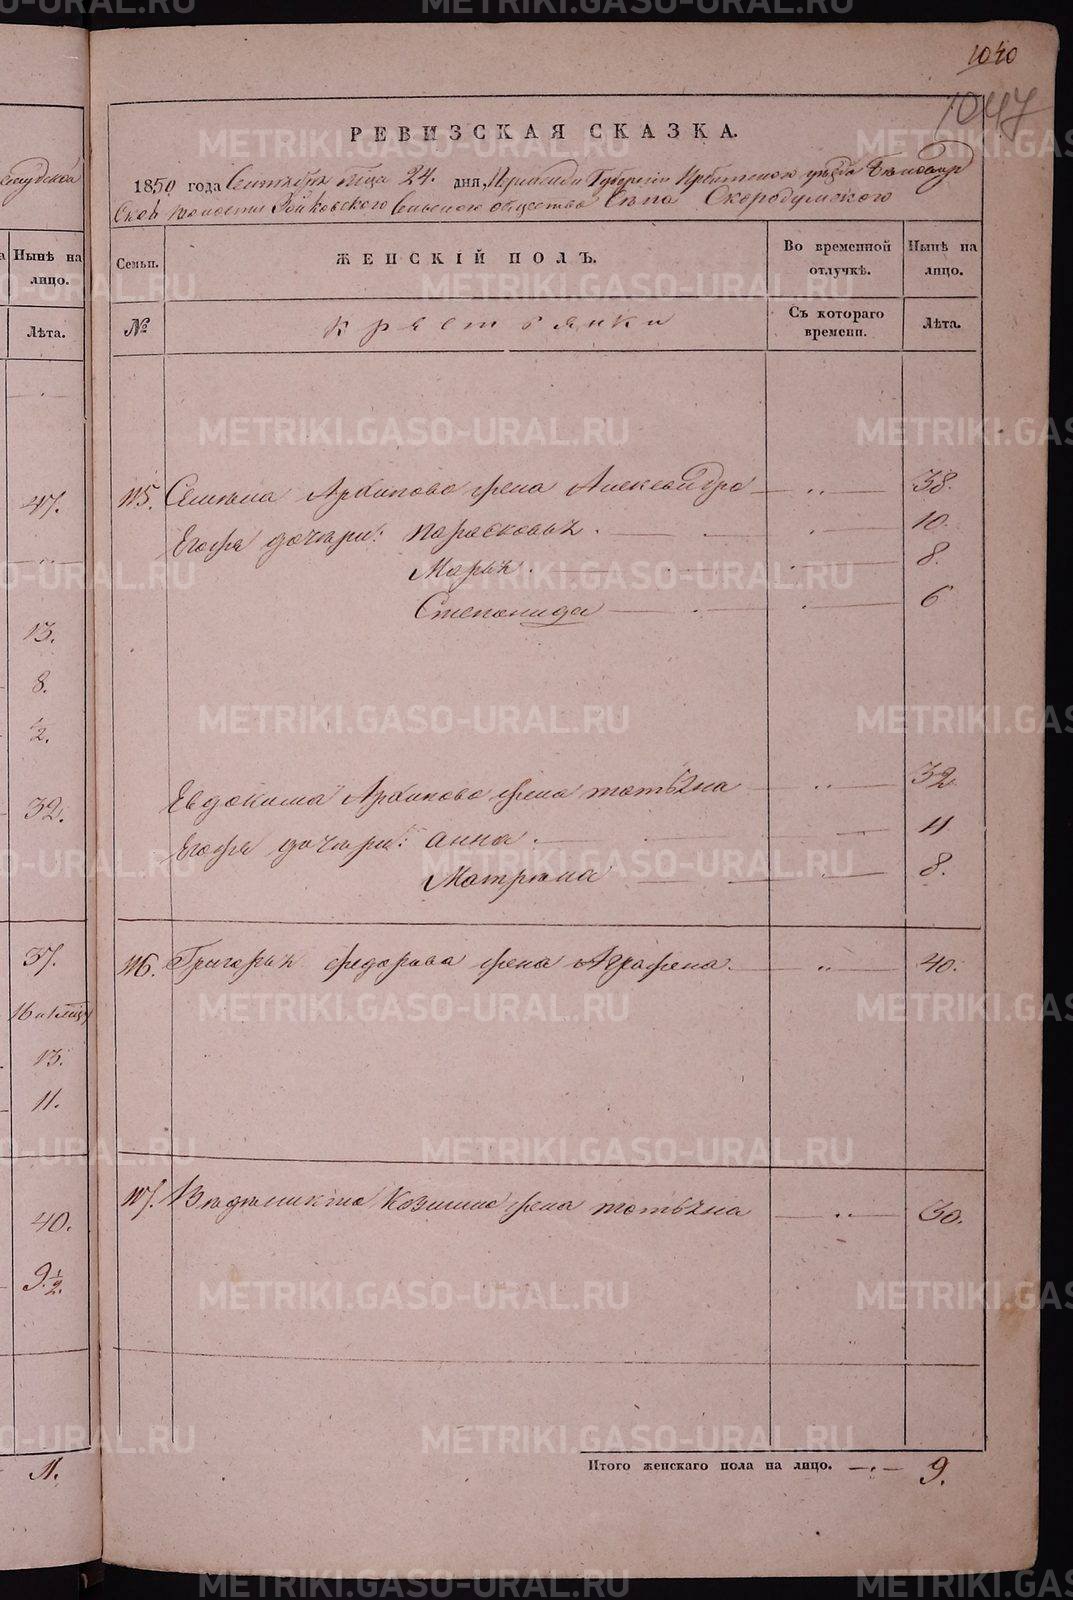 1040
1047
РЕВИЗСКАЯ СКАЗКА.
1850 года Сентября м-ца 24. дня, Пермской Губернiи Ирбитскаго уѣзда
волости Сельскаго общества Села Скородумскаго
Семьи. ЖЕНСКIЙ ПОЛЪ. Во временной отлучкѣ. Нынѣ на лицо.
№ Крестьянки Съ котораго времени. Лѣта.
115. Семена Архипова жена Александра — „ — 38.
Егоже дочери: Парасковья. 10.
Марья. 8.
Степонида 6
Евдокима Архипова жена татьяна — „ — 32
Егоже дочери: анна. 11
Матрена 8.
116. Григорья федорова жена Аграфена. — „ — 40.
117. Козмина жена татьяна — „ — 50.
Итого женскаго пола на лицо. 9.
Нынѣ на лицо.
Лѣта.
47.
13.
8.
1/2.
32.
37.
13.
11.
40.
9 1/2.
11.
METRIKI.GASO-URAL.RU